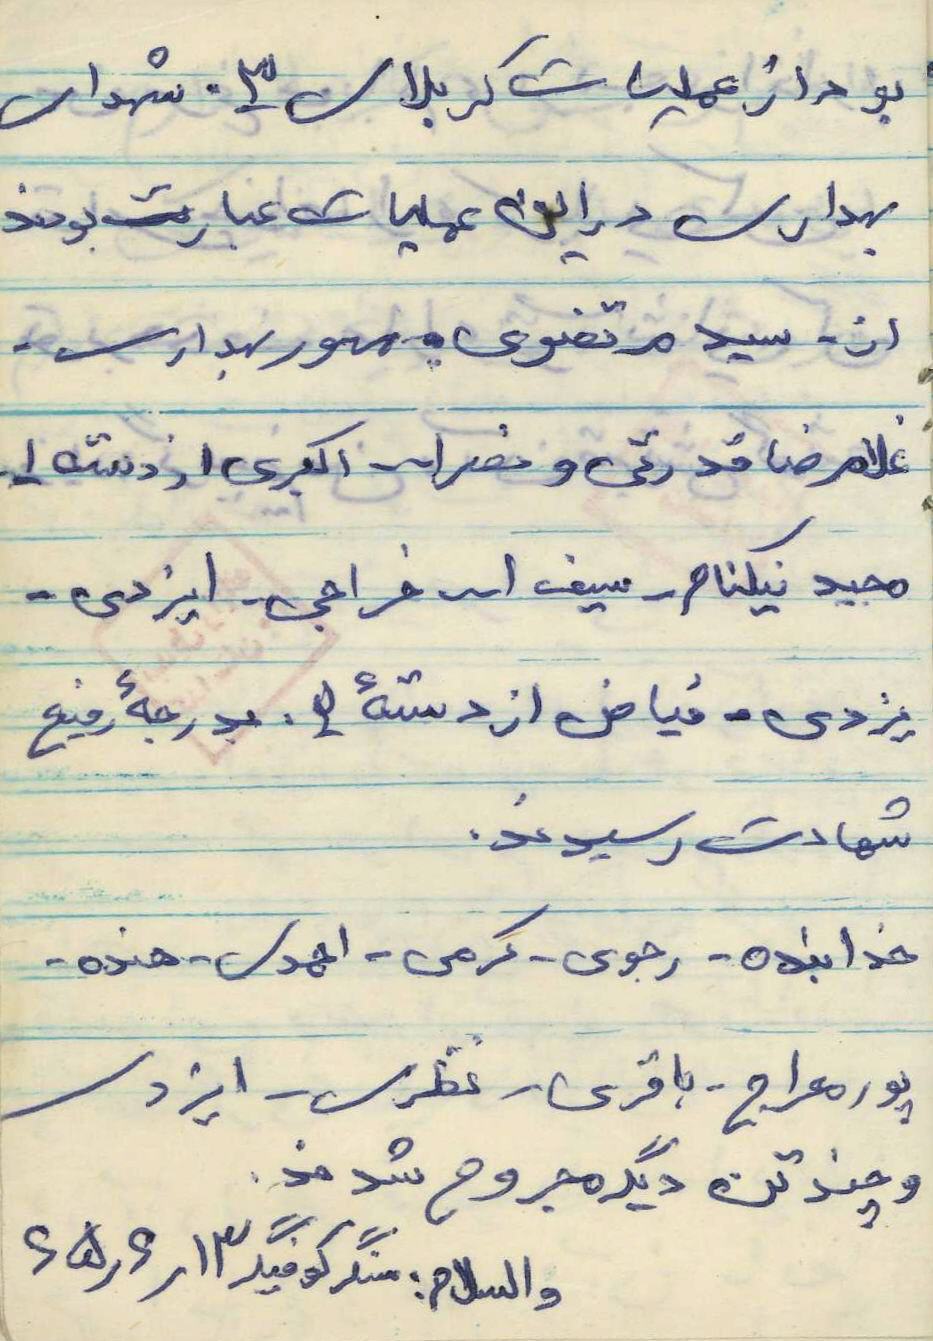 بود از عملیات کربلای ۳. شهدای
بهداری در این عملیات عبارت بودند
از - سید مرتضوی بهداری -
غلامرضا قدرتی و نصراله اکبری از دسته ۱.
مجید نیکنام - سیف اله فراجی - ایزدی -
یزدی - فیاض از دستهٔ ۲. بدرجهٔ رفیع
شهادت رسیدند.
خدابنده - رجوی - کرمی - احمدی - هنده -
پورمعراج - باقری - نظری - ایزدی
و چند تن دیگر مجروح شدند.
والسلام: سنگر کوفیگر ۶۵٫۶٫۱۳